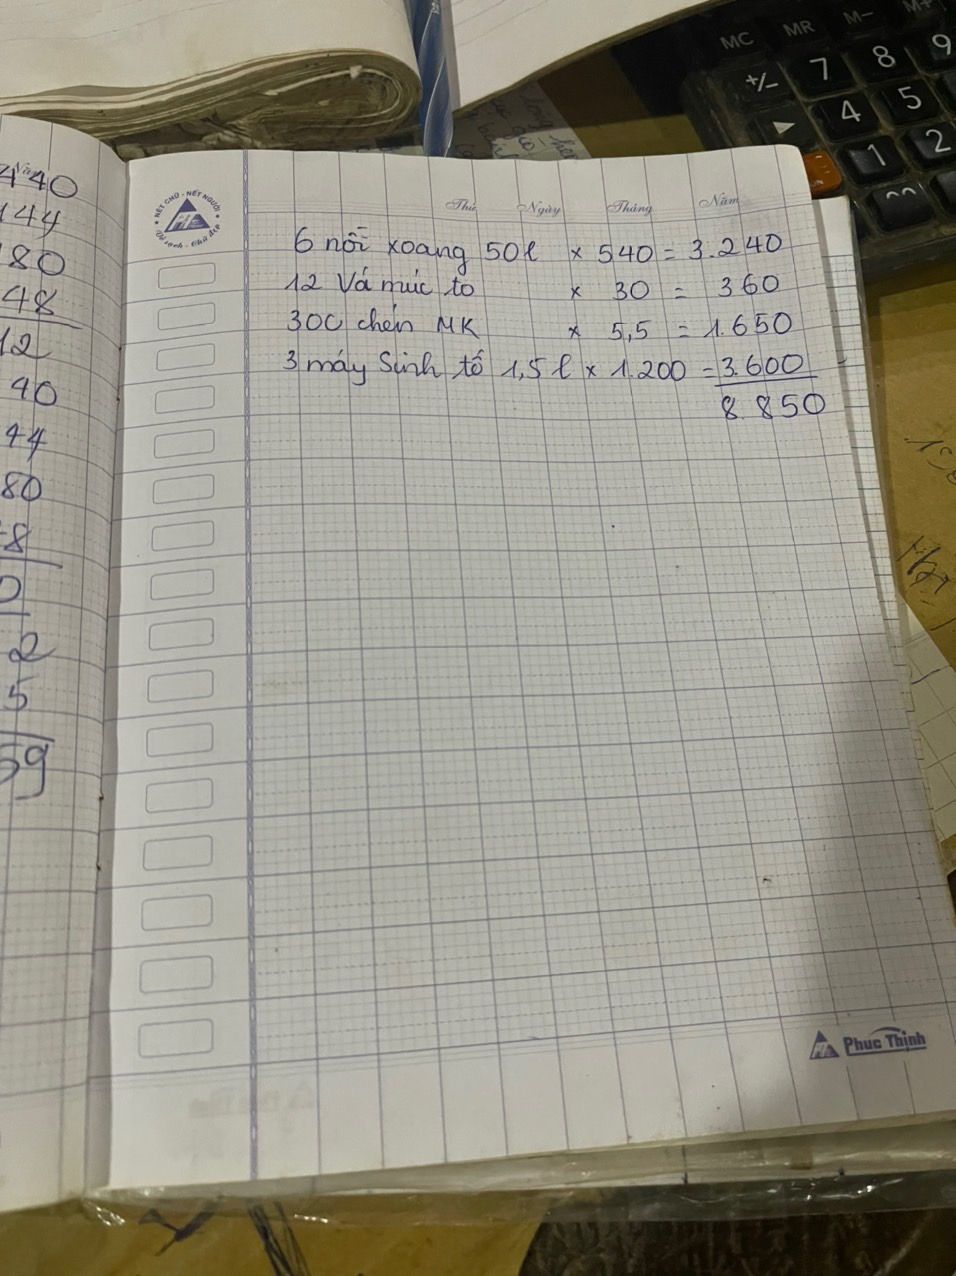 MC MR M- M+
+/- 7 8 9
4 5
1 2
440
144
180
48
12
40
44
80
8
0
2
5
59
NÉT CHỮ - NẾT NGƯỜI
Vở sạch - Chữ đẹp
Thứ Ngày Tháng Năm
6 nồi xoang 50l × 540 = 3.240
12 Vá múc to × 30 = 360
300 chén MK × 5,5 = 1.650
3 máy Sinh tố 1,5 l × 1.200 = 3.600
8.850
Phuc Thinh